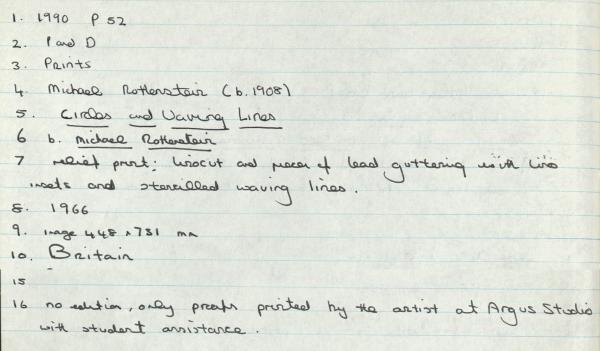 1. 1990 P 52
2. P and D
3. Prints
4. Michael Rothenstein (b. 1908)
5. Circles and Waving Lines
6 b. Michael Rothenstein
7 relief print: linocut and pieces of lead guttering with lino
insets and stencilled waving lines.
8. 1966
9. image 448 x 731 mm
10. Britain
15
16 no edition, only proofs printed by the artist at Argus Studio
with student assistance.